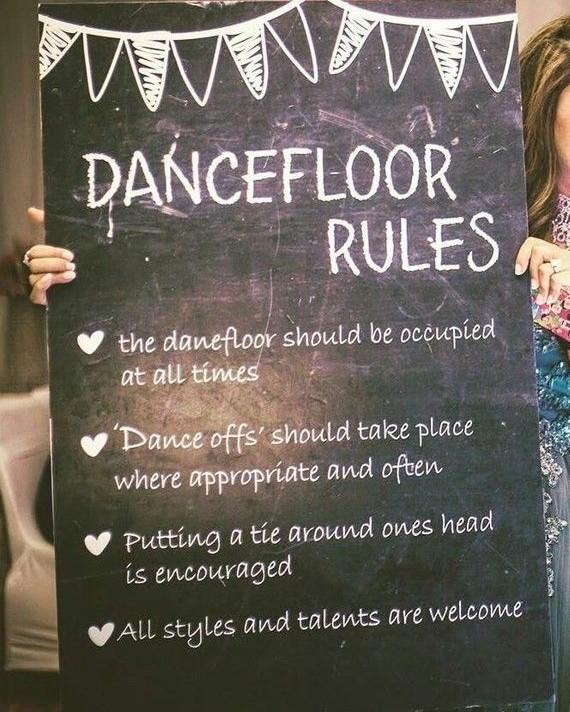 DANCEFLOOR
RULES
the danefloor should be occupied
at all times
'Dance offs' should take place
where appropriate and often
Putting a tie around ones head
is encouraged
All styles and talents are welcome